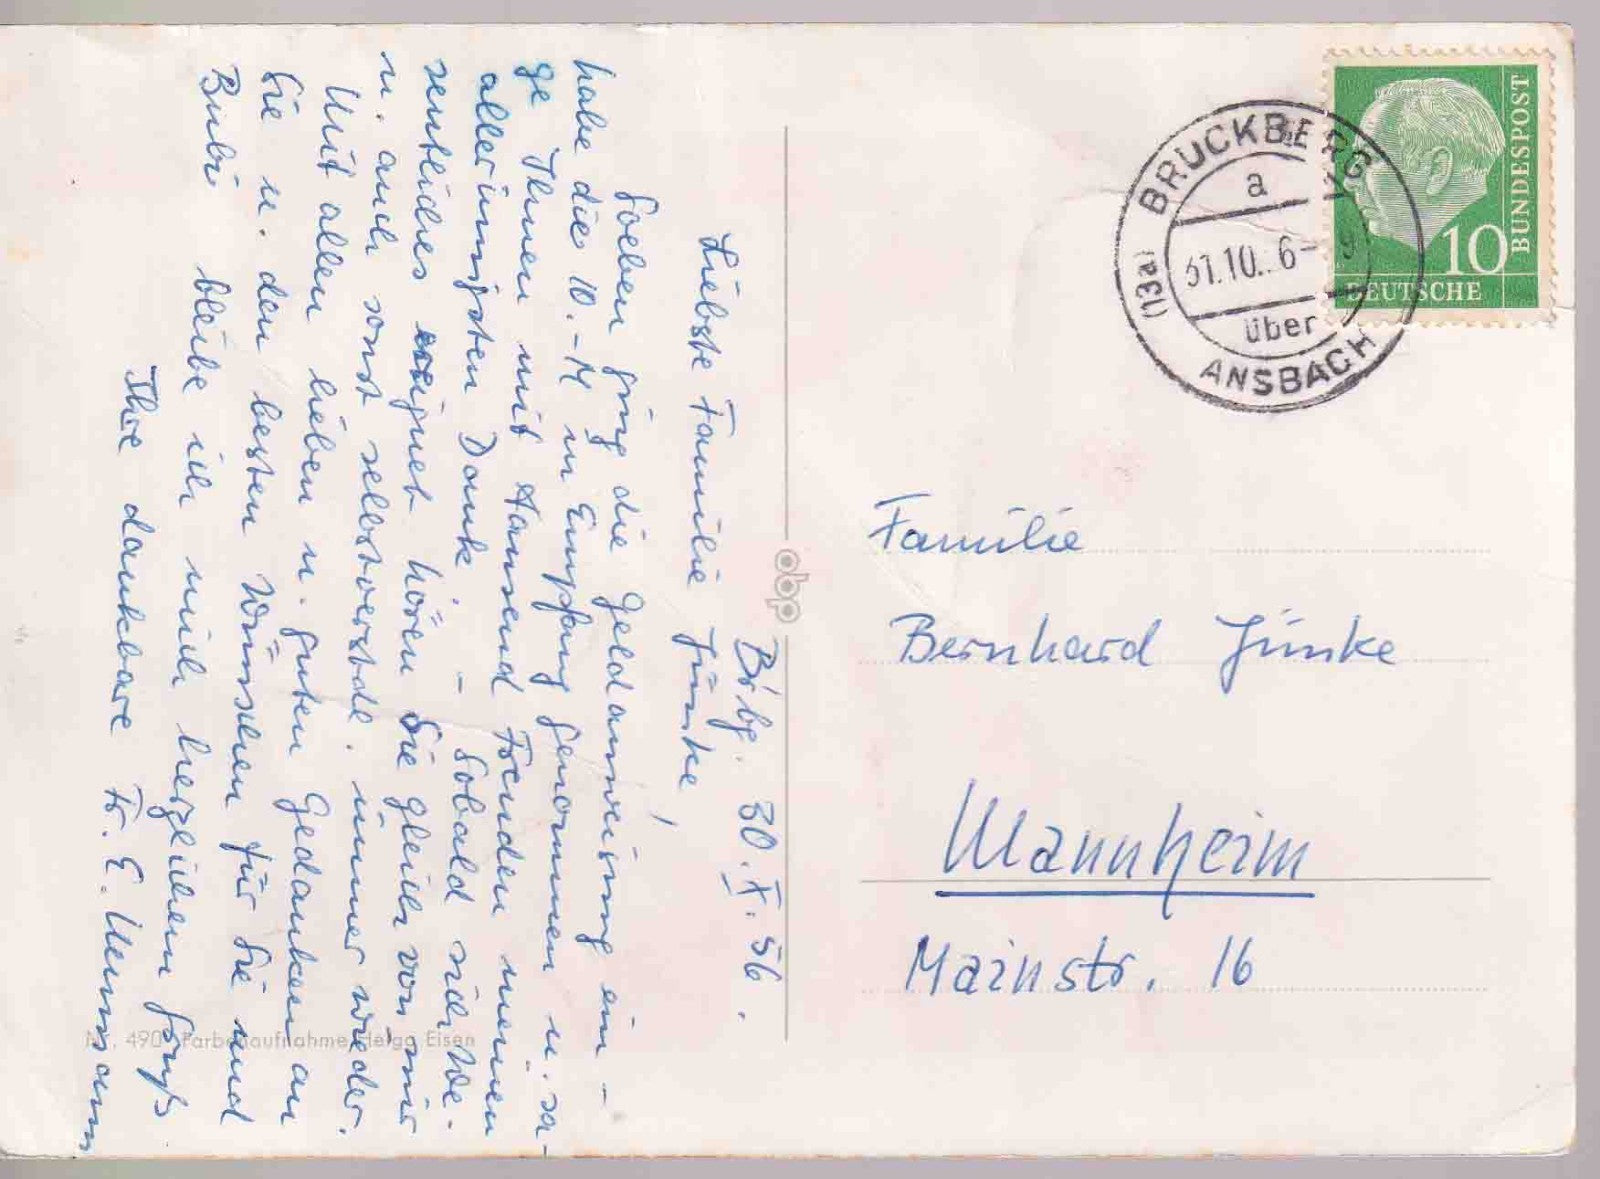 Brbg. 30.X.56.
Liebste Familie Jünke!
Soeben ging die Geldanweisung ein –
habe die 10.-M in Empfang genommen u. sa-
ge Ihnen mit tausend Freuden meinen
allerinnigsten Dank. – Sobald sich We-
sentliches ereignet hören Sie gleich von mir
u. auch sonst selbstverstdl. immer wieder.
Mit allen lieben u. guten Gedanken an
Sie u. den besten Wünschen für Sie und
Bubi bleibe ich mich herzlichem Gruß
Ihre dankbare Fr. E.
Nr. 490 Farbenaufnahme Helga Eisen
abp
BRUCKBERG
a
31.10. 6-
(13a)
über
ANSBACH
10
DEUTSCHE
BUNDESPOST
Familie
Bernhard Jünke
Mannheim
Mainstr. 16